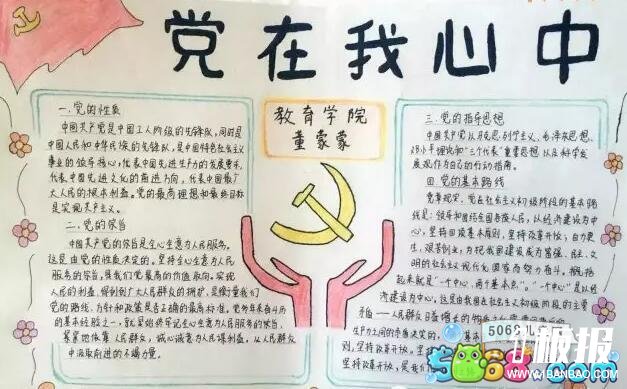 党在我心中
教育学院
董蒙蒙
一.党的性质
中国共产党是中国工人阶级的先锋队,同时是
中国人民和中华民族的先锋队,是中国特色社会主义
事业的领导核心,代表中国先进生产力的发展要求,
代表中国先进文化的前进方向,代表中国最广
大人民的根本利益。党的最高理想和最终目标
是实现共产主义。
二.党的宗旨
中国共产党的宗旨是全心全意为人民服务。
这是由党的性质决定的。坚持全心全意为人民
服务的宗旨,是我们党最高的价值取向。实现
人民的利益,得到到广大人民群众的拥护,是衡量我们
党的路线,方针和政策是否正确的最高标准。党多年来奋斗历
的基本经验之一,就是始终牢记全心全意为人民服务的宗旨,
紧紧地依靠人民群众,诚心诚意为人民谋利益,从人民群众
中汲取前进的不竭力量。
三.党的指导思想
中国共产党以马克思列宁主义、毛泽东思想、
邓小平理论和“三个代表”重要思想以及科学发
展观作为自己的行动指南。
四.党的基本路线
党章规定,党在社会主义初级阶段的基本路
线是:领导和团结全国各族人民,以经济建设为中
心,坚持四项基本原则,坚持改革开放,自力更
生,艰苦创业,为把我国建设成为富强、民主、文
明的社会主义现代化国家而努力奋斗。概括
起来就是“一个中心,两个基本点”。“一个中心”是以经
济建设为中心,这是由我国在社会主义初级阶段的主要
矛盾——人民群众日益增长的物质文化
生产力之间的矛盾决定的。基本
坚持改革开放,坚持
坚持改革开放,是我
5068儿
板报
WWW.41BANBAO.COM